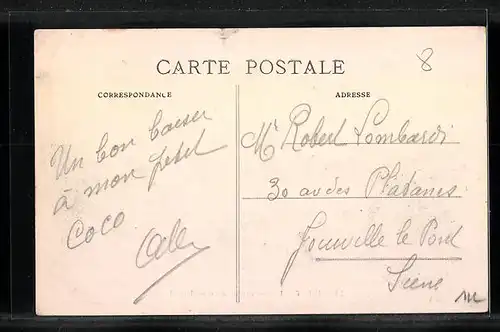 CARTE POSTALE
8
CORRESPONDANCE
ADRESSE
Un bon baiser
à mon petit
Coco
Mr Robert Lombardi
30 av des Platanes
Joinville le Pont
Seine